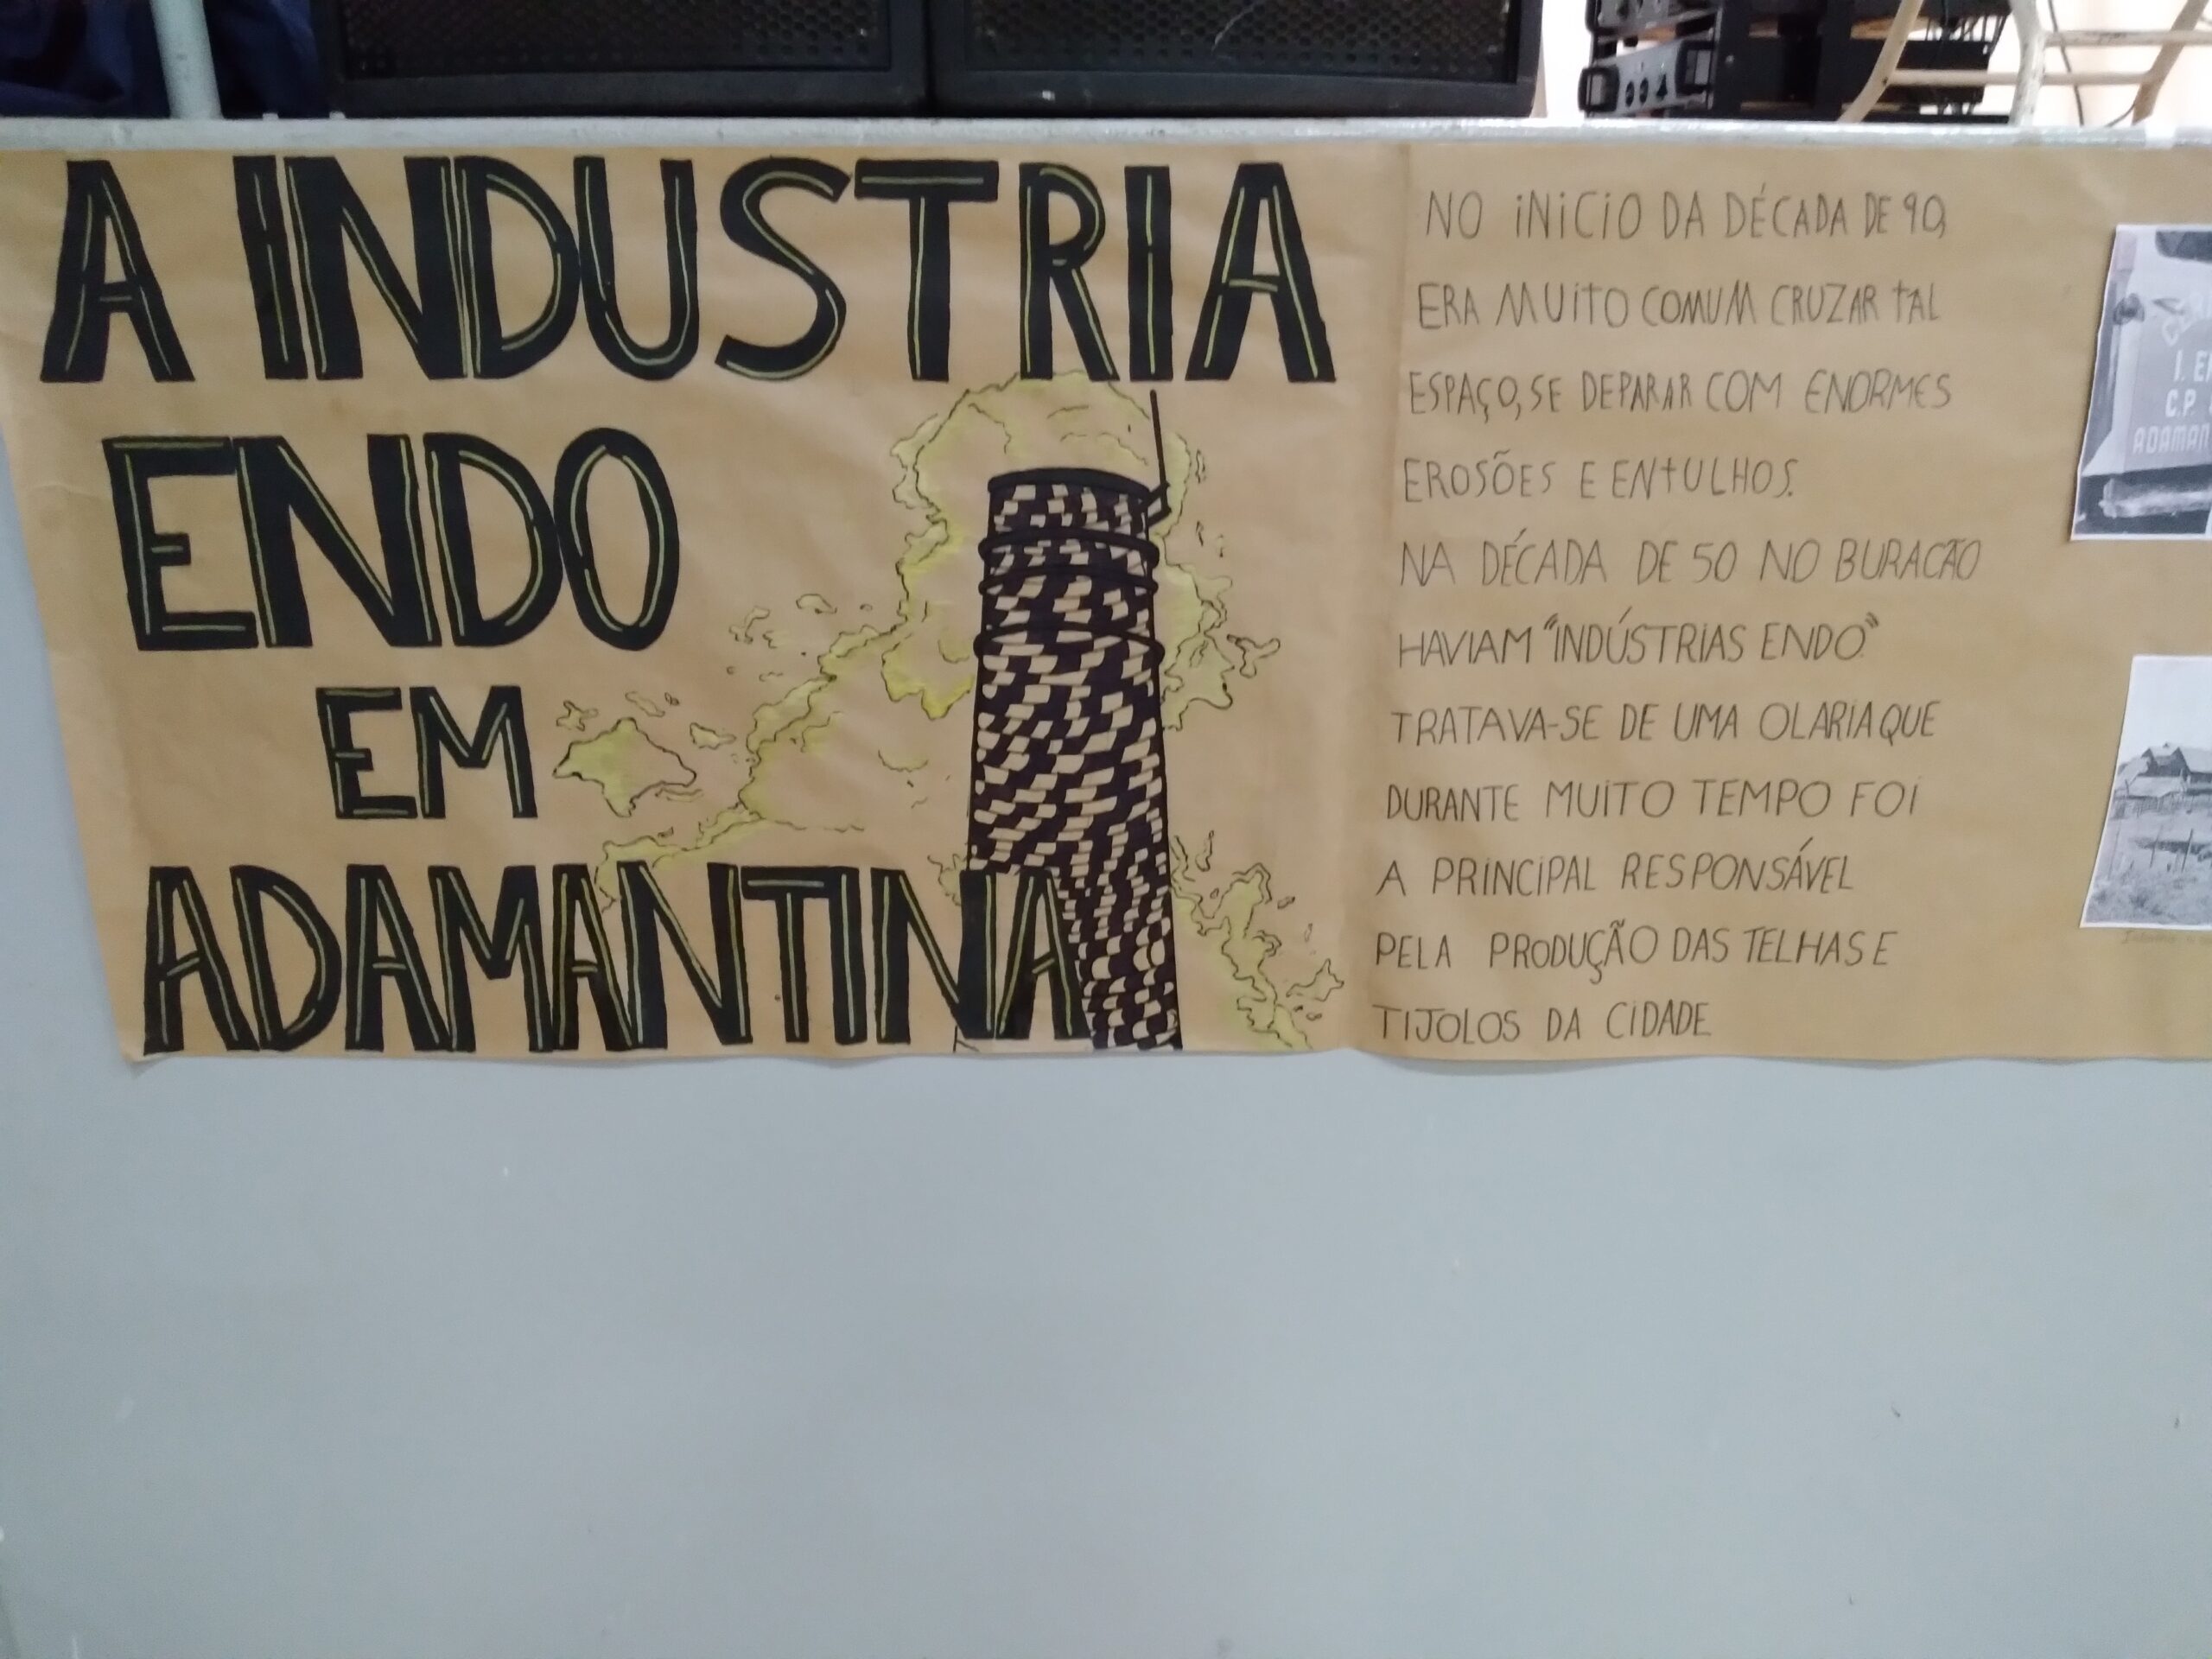 A INDUSTRIA
ENDO
EM
ADAMANTINA
NO INICIO DA DÉCADA DE 90,
ERA MUITO COMUM CRUZAR TAL
ESPAÇO, SE DEPARAR COM ENORMES
EROSÕES E ENTULHOS.
NA DÉCADA DE 50 NO BURACÃO
HAVIAM "INDÚSTRIAS ENDO"
TRATAVA-SE DE UMA OLARIA QUE
DURANTE MUITO TEMPO FOI
A PRINCIPAL RESPONSÁVEL
PELA PRODUÇÃO DAS TELHAS E
TIJOLOS DA CIDADE
I.
C.P.